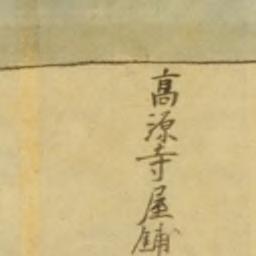 高源寺屋舖